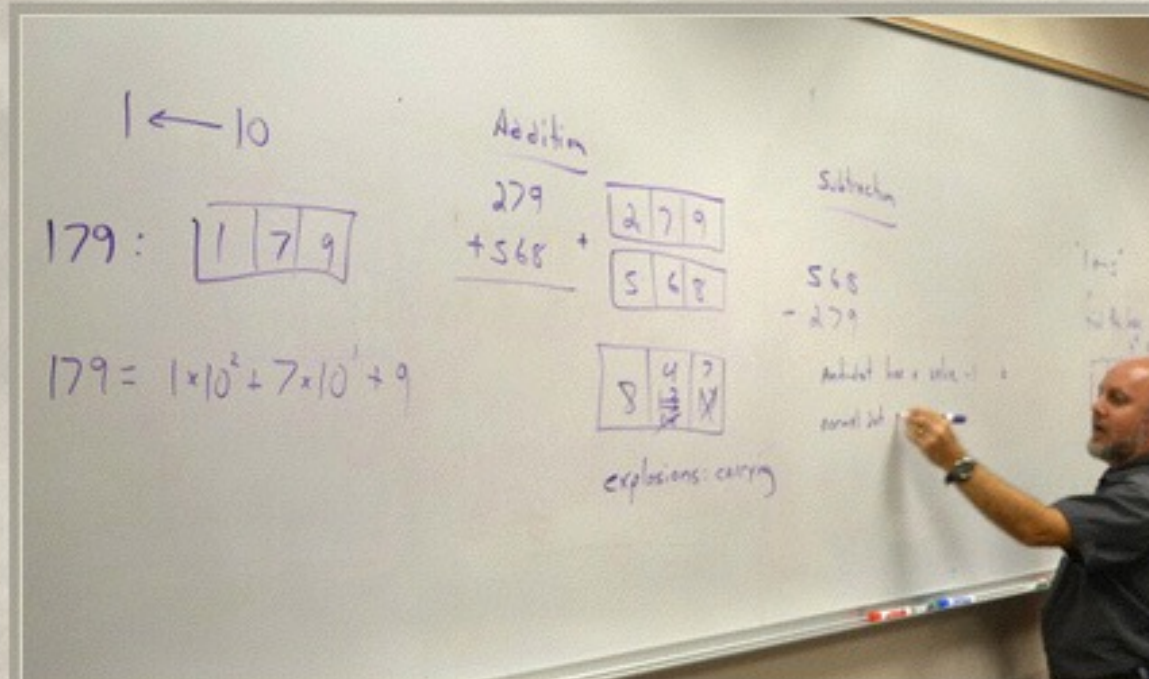 1 ← 10
179: 1 7 9
179 = 1×10² + 7×10¹ + 9
Addition
279
+568
2 7 9
+
5 6 8
8 4 7
explosions: carrying
Subtraction
568
- 279
has a value -1
normal dot